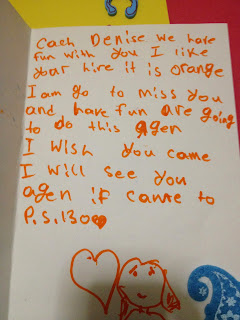 Cach Denise we have
fun with you I like
your hire it is orange
I am go to miss you
and have fun are going
to do this agen
I wish you came
I will see you
agen if came to
P.S.130